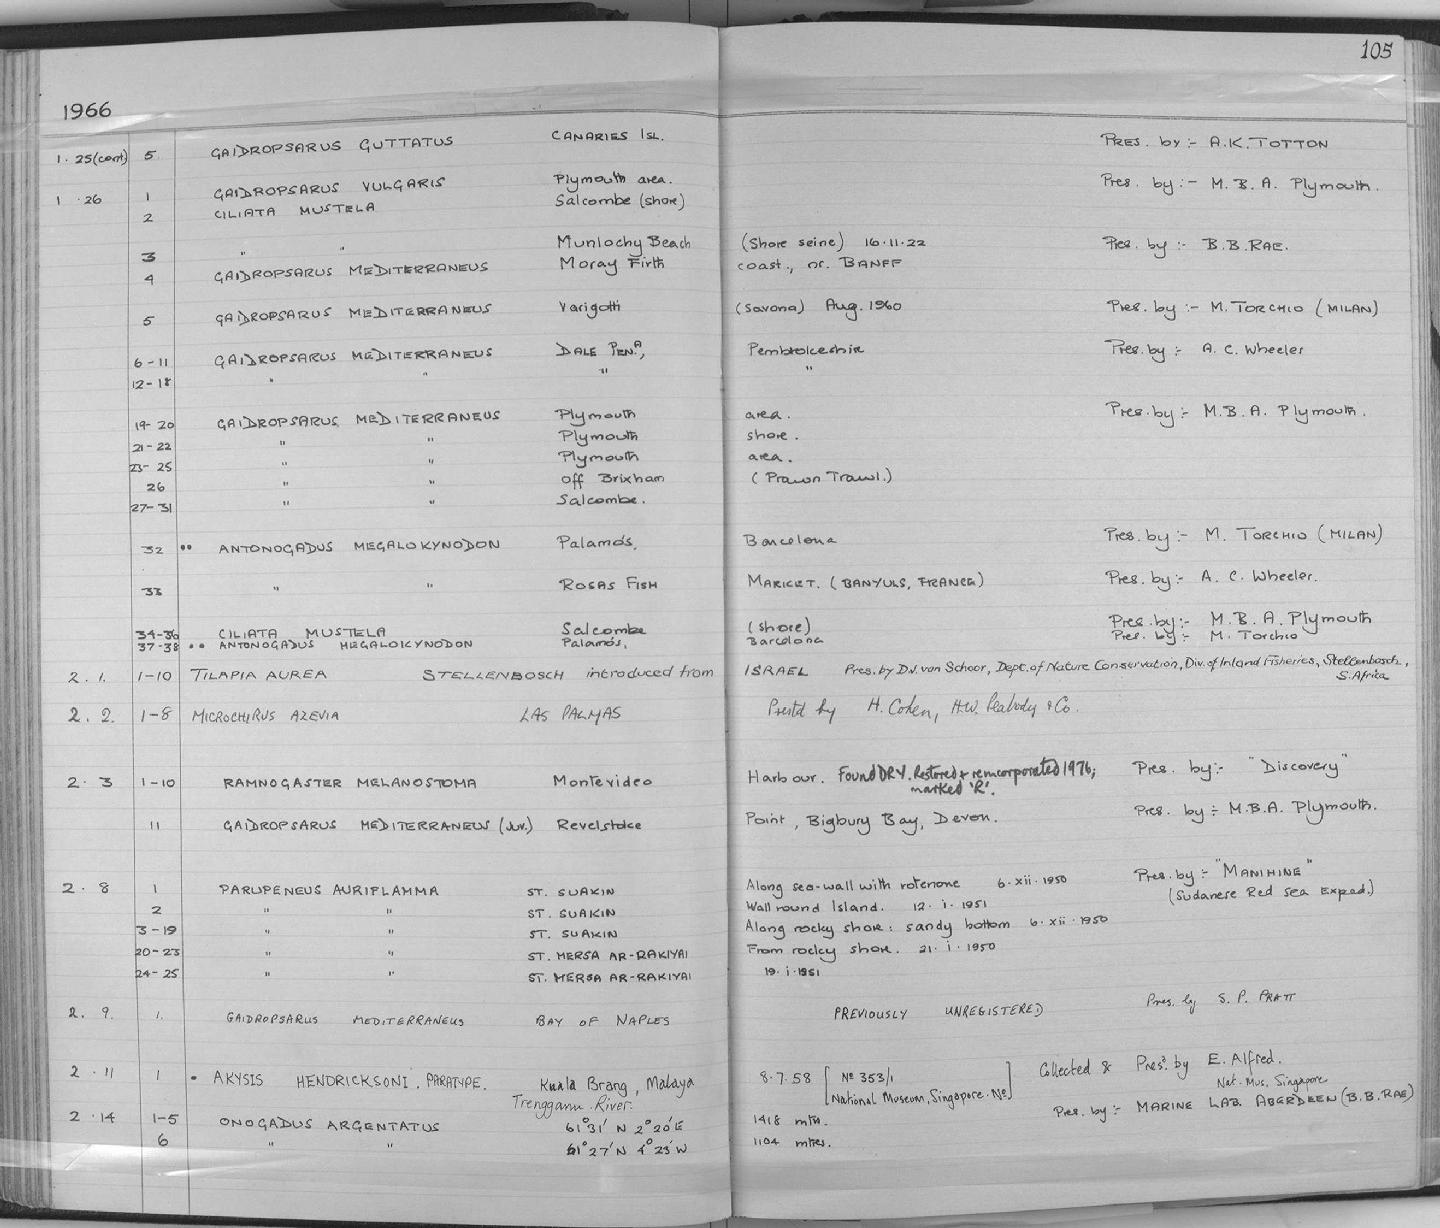 105
1966
1.25(cont) 5 GAIDROPSARUS GUTTATUS CANARIES ISL. PRES. by:- A.K. TOTTON
1.26 1 GAIDROPSARUS VULGARIS Plymouth area. Pres. by:- M.B.A. Plymouth.
2 CILIATA MUSTELA Salcombe (shore)
3 " " Munlochy Beach (Shore seine) 16.11.22 Pres. by:- B.B. RAE.
4 GAIDROPSARUS MEDITERRANEUS Moray Firth coast., nr. BANFF
5 GAIDROPSARUS MEDITERRANEUS Varigotti (Savona) Aug. 1960 Pres. by:- M. TORCHIO (MILAN)
6-11 GAIDROPSARUS MEDITERRANEUS DALE PEN.A, Pembrokeshire Pres. by:- A.C. Wheeler
12-18 " " " "
19-20 GAIDROPSARUS MEDITERRANEUS Plymouth area. Pres. by:- M.B.A. Plymouth.
21-22 " " Plymouth shore.
23-25 " " Plymouth area.
26 " " off Brixham (Prawn Trawl.)
27-31 " " Salcombe.
32 •• ANTONOGADUS MEGALOKYNODON Palamós, Barcelona Pres. by:- M. TORCHIO (MILAN)
33 " " ROSAS FISH MARKET. (BANYULS, FRANCE) Pres. by:- A.C. Wheeler.
34-36 CILIATA MUSTELA Salcombe (shore) Pres. by:- M.B.A. Plymouth
37-38 •• ANTONOGADUS MEGALOKYNODON Palamós, Barcelona Pres. by:- M. Torchio
2.1. 1-10 TILAPIA AUREA STELLENBOSCH introduced from ISRAEL Pres. by D.J. van Schoor, Dept. of Nature Conservation, Div. of Inland Fisheries, Stellenbosch,
S. Africa
2.2. 1-8 MICROCHIRUS AZEVIA LAS PALMAS Prestd by H. Cohen, H.W. Peabody & Co.
2.3 1-10 RAMNOGASTER MELANOSTOMA Montevideo Harbour. Found DRY. Restored & reincorporated 1976; Pres. by:- "Discovery"
marked 'R'.
11 GAIDROPSARUS MEDITERRANEUS (Juv.) Revelstoke Point, Bigbury Bay, Devon. Pres. by:- M.B.A. Plymouth.
2.8 1 PARUPENEUS AURIFLAMMA ST. SUAKIN Along sea-wall with rotenone 6.xii.1950 Pres. by:- "MANIHINE"
2 " " ST. SUAKIN Wall round Island. 12.i.1951 (Sudanese Red Sea Exped.)
3-19 " " ST. SUAKIN Along rocky shore: sandy bottom 6.xii.1950
20-23 " " ST. MERSA AR-RAKIYAI From rocky shore. 21.i.1950
24-25 " " ST. MERSA AR-RAKIYAI 19.i.1951
2.9. 1. GAIDROPSARUS MEDITERRANEUS BAY OF NAPLES PREVIOUSLY UNREGISTERED Pres. by S.P. PRATT
2.11 1 • AKYSIS HENDRICKSONI. PARATYPE. Kuala Brang, Malaya 8.7.58 [No 353/1 Collected & Presd by E. Alfred.
Trengganu River. National Museum, Singapore. No] Nat. Mus. Singapore
2.14 1-5 ONOGADUS ARGENTATUS 61°31' N 2°20'E 1418 mtrs. Pres. by:- MARINE LAB. ABERDEEN (B.B. RAE)
6 " " 61°27'N 4°23'W 1104 mtres.